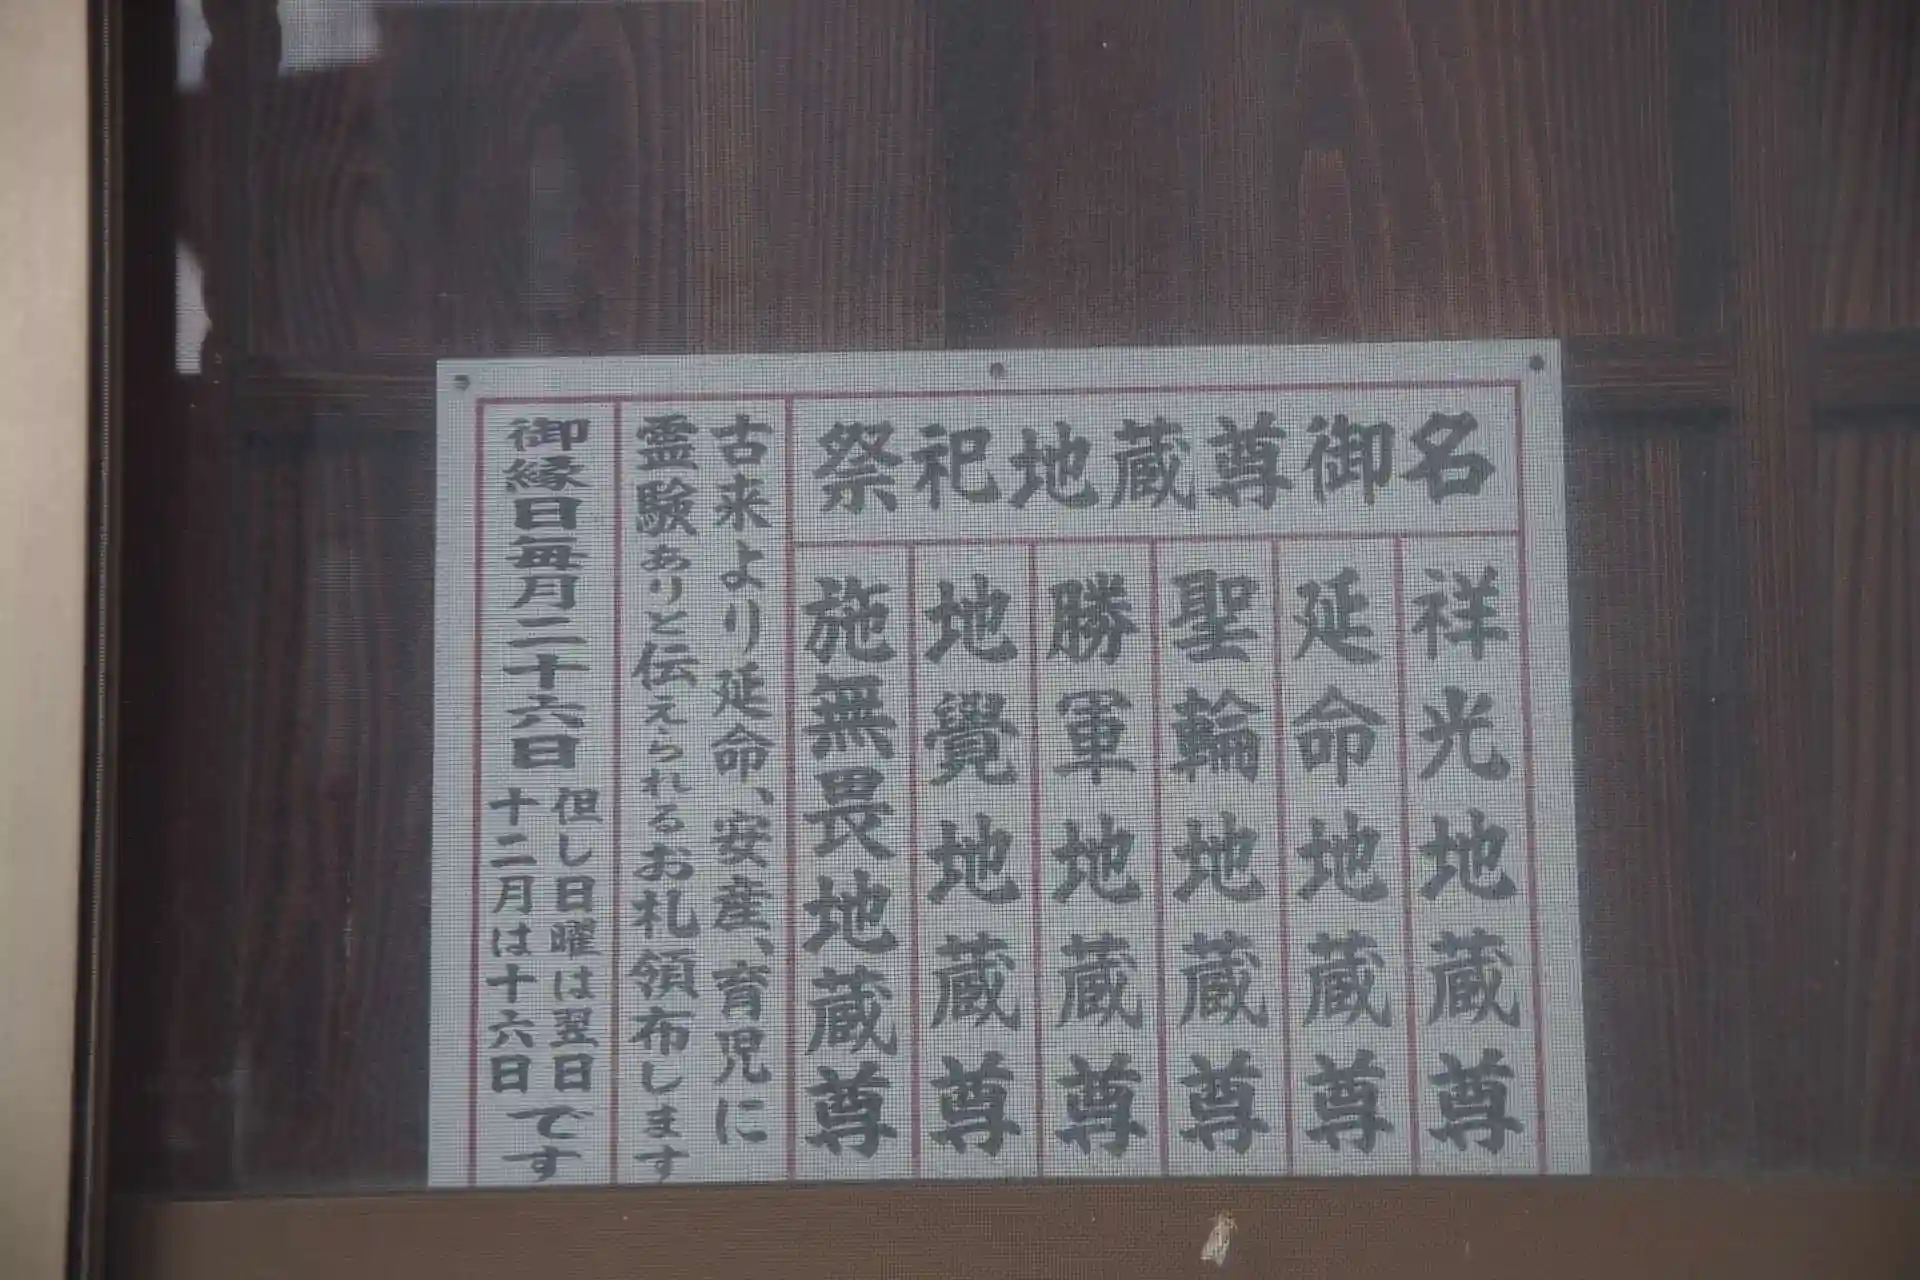 祭祀地蔵尊御名
祥光地蔵尊
延命地蔵尊
聖輪地蔵尊
勝軍地蔵尊
地覺地蔵尊
施無畏地蔵尊
古来より延命、安産、育児に
霊験ありと伝えられるお札領布します
御縁日毎月二十六日
但し日曜は翌日
十二月は十六日
です